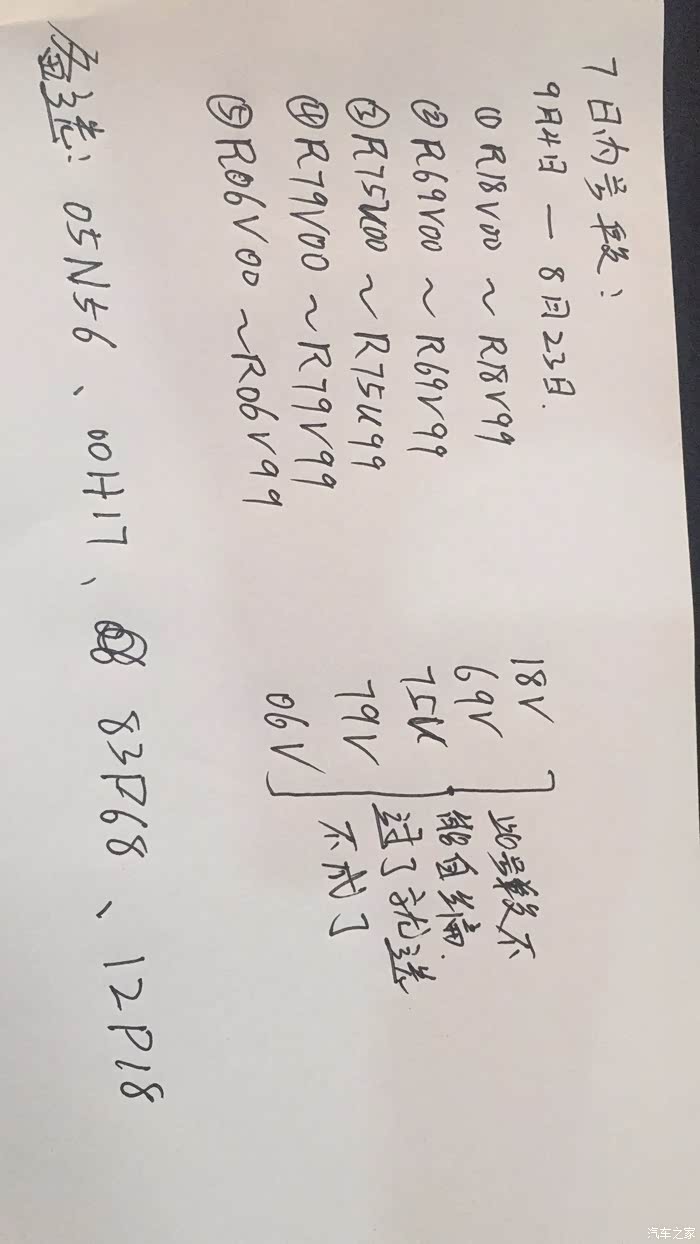 7日内号段:
9月4日 — 8月23日.
① R18V00 ~ R18V99
② R69V00 ~ R69V99
③ R75U00 ~ R75U99
④ R79V00 ~ R79V99
⑤ R06V00 ~ R06V99
18V
69V
75U
79V
06V
此号段不
能自编.
过了就选
不成了
选: 05N56、00H17、83P68、12P18
汽车之家